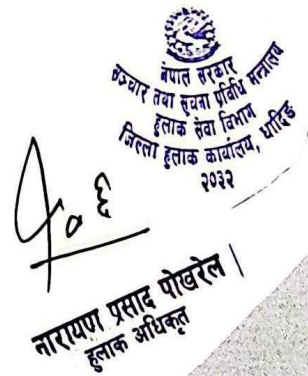 नेपाल सरकार
सञ्चार तथा सूचना प्रविधि मन्त्रालय
हुलाक सेवा विभाग
जिल्ला हुलाक कार्यालय, धादिङ
२०३२
नारायण प्रसाद पोखरेल
हुलाक अधिकृत